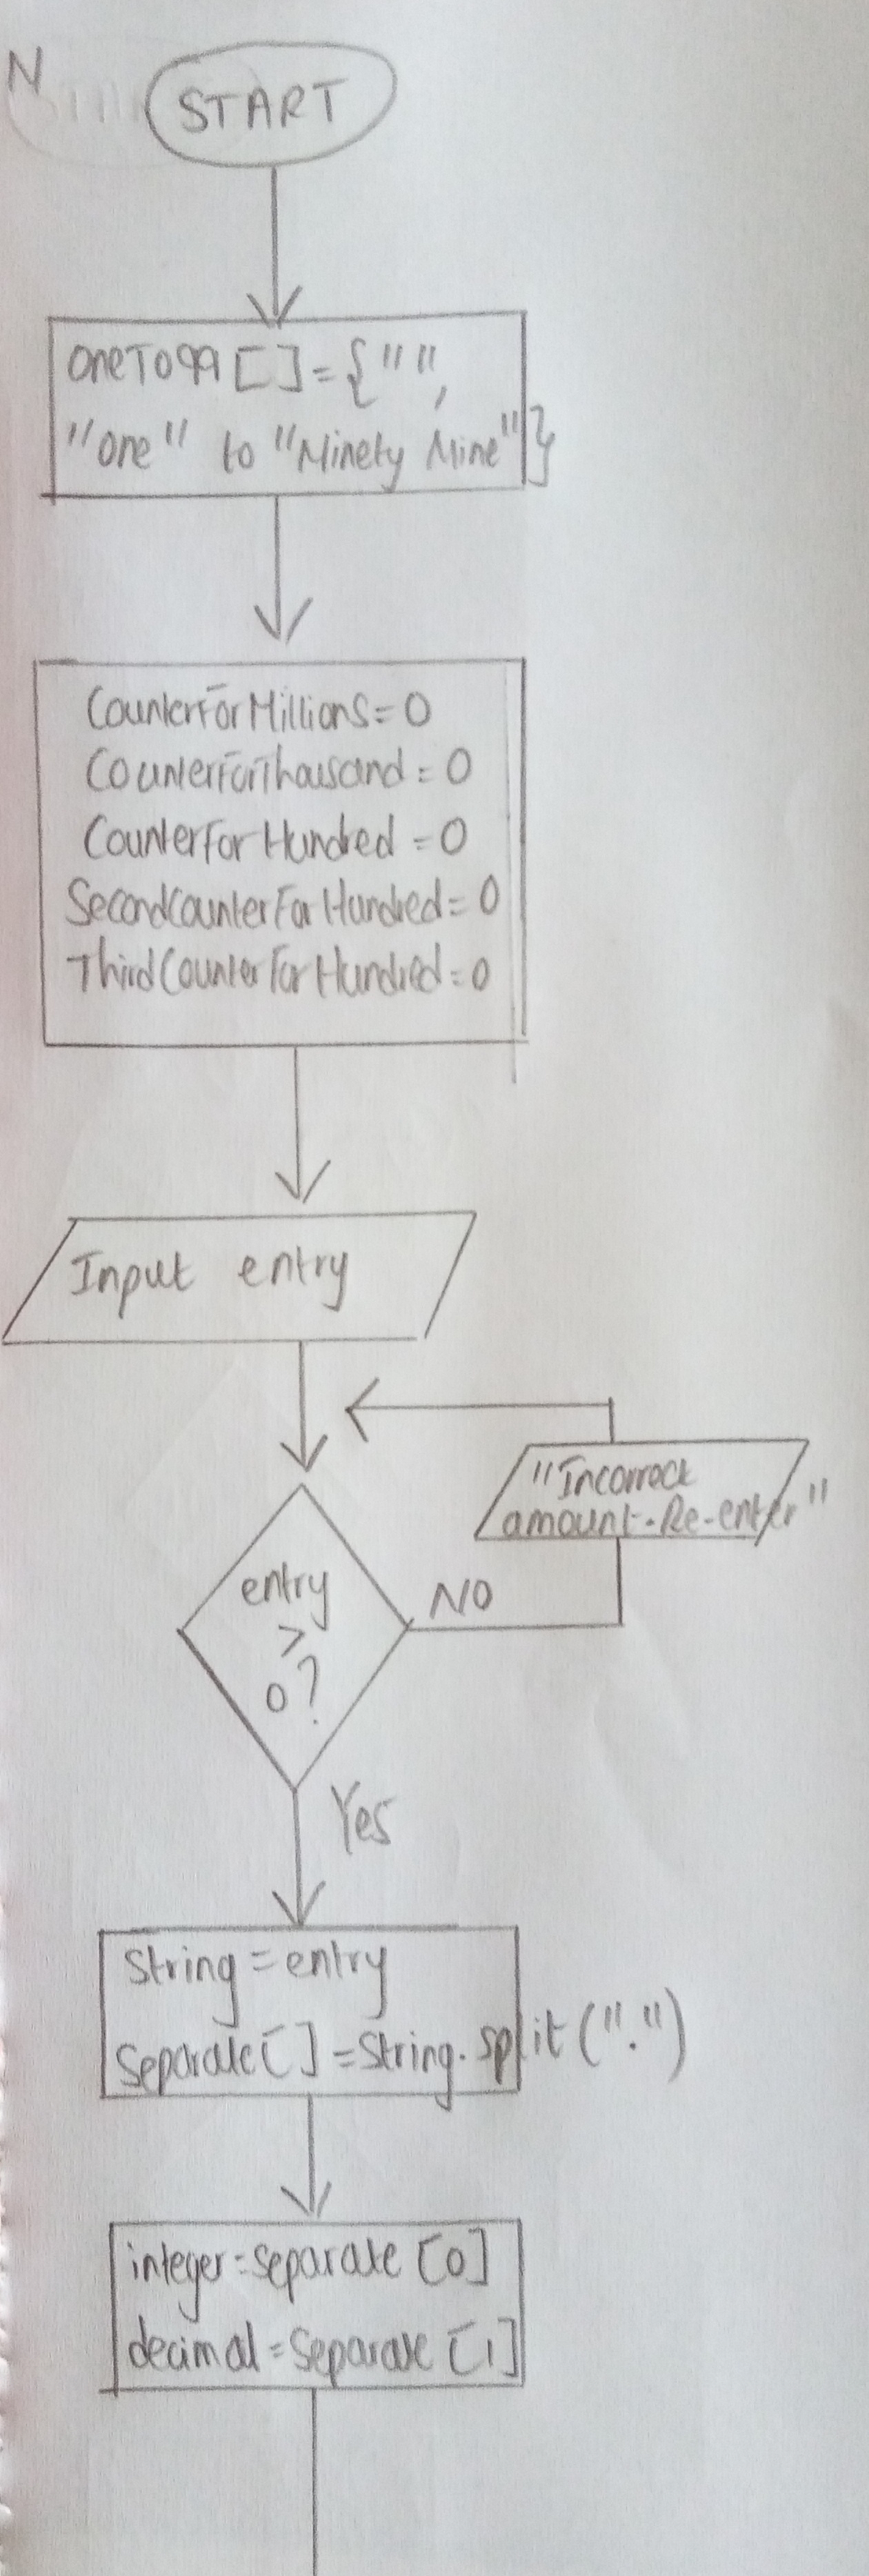 N
START
OneTo99[]={"",
"One" to "Ninety Nine"}
CounterForMillions=0
CounterForThousand=0
CounterForHundred=0
SecondCounterForHundred=0
ThirdCounterForHundred=0
Input entry
"Incorrect
amount.Re-enter"
entry
>
0?
NO
Yes
String=entry
Separate[]=String.split(".")
integer=separate[0]
decimal=separate[1]